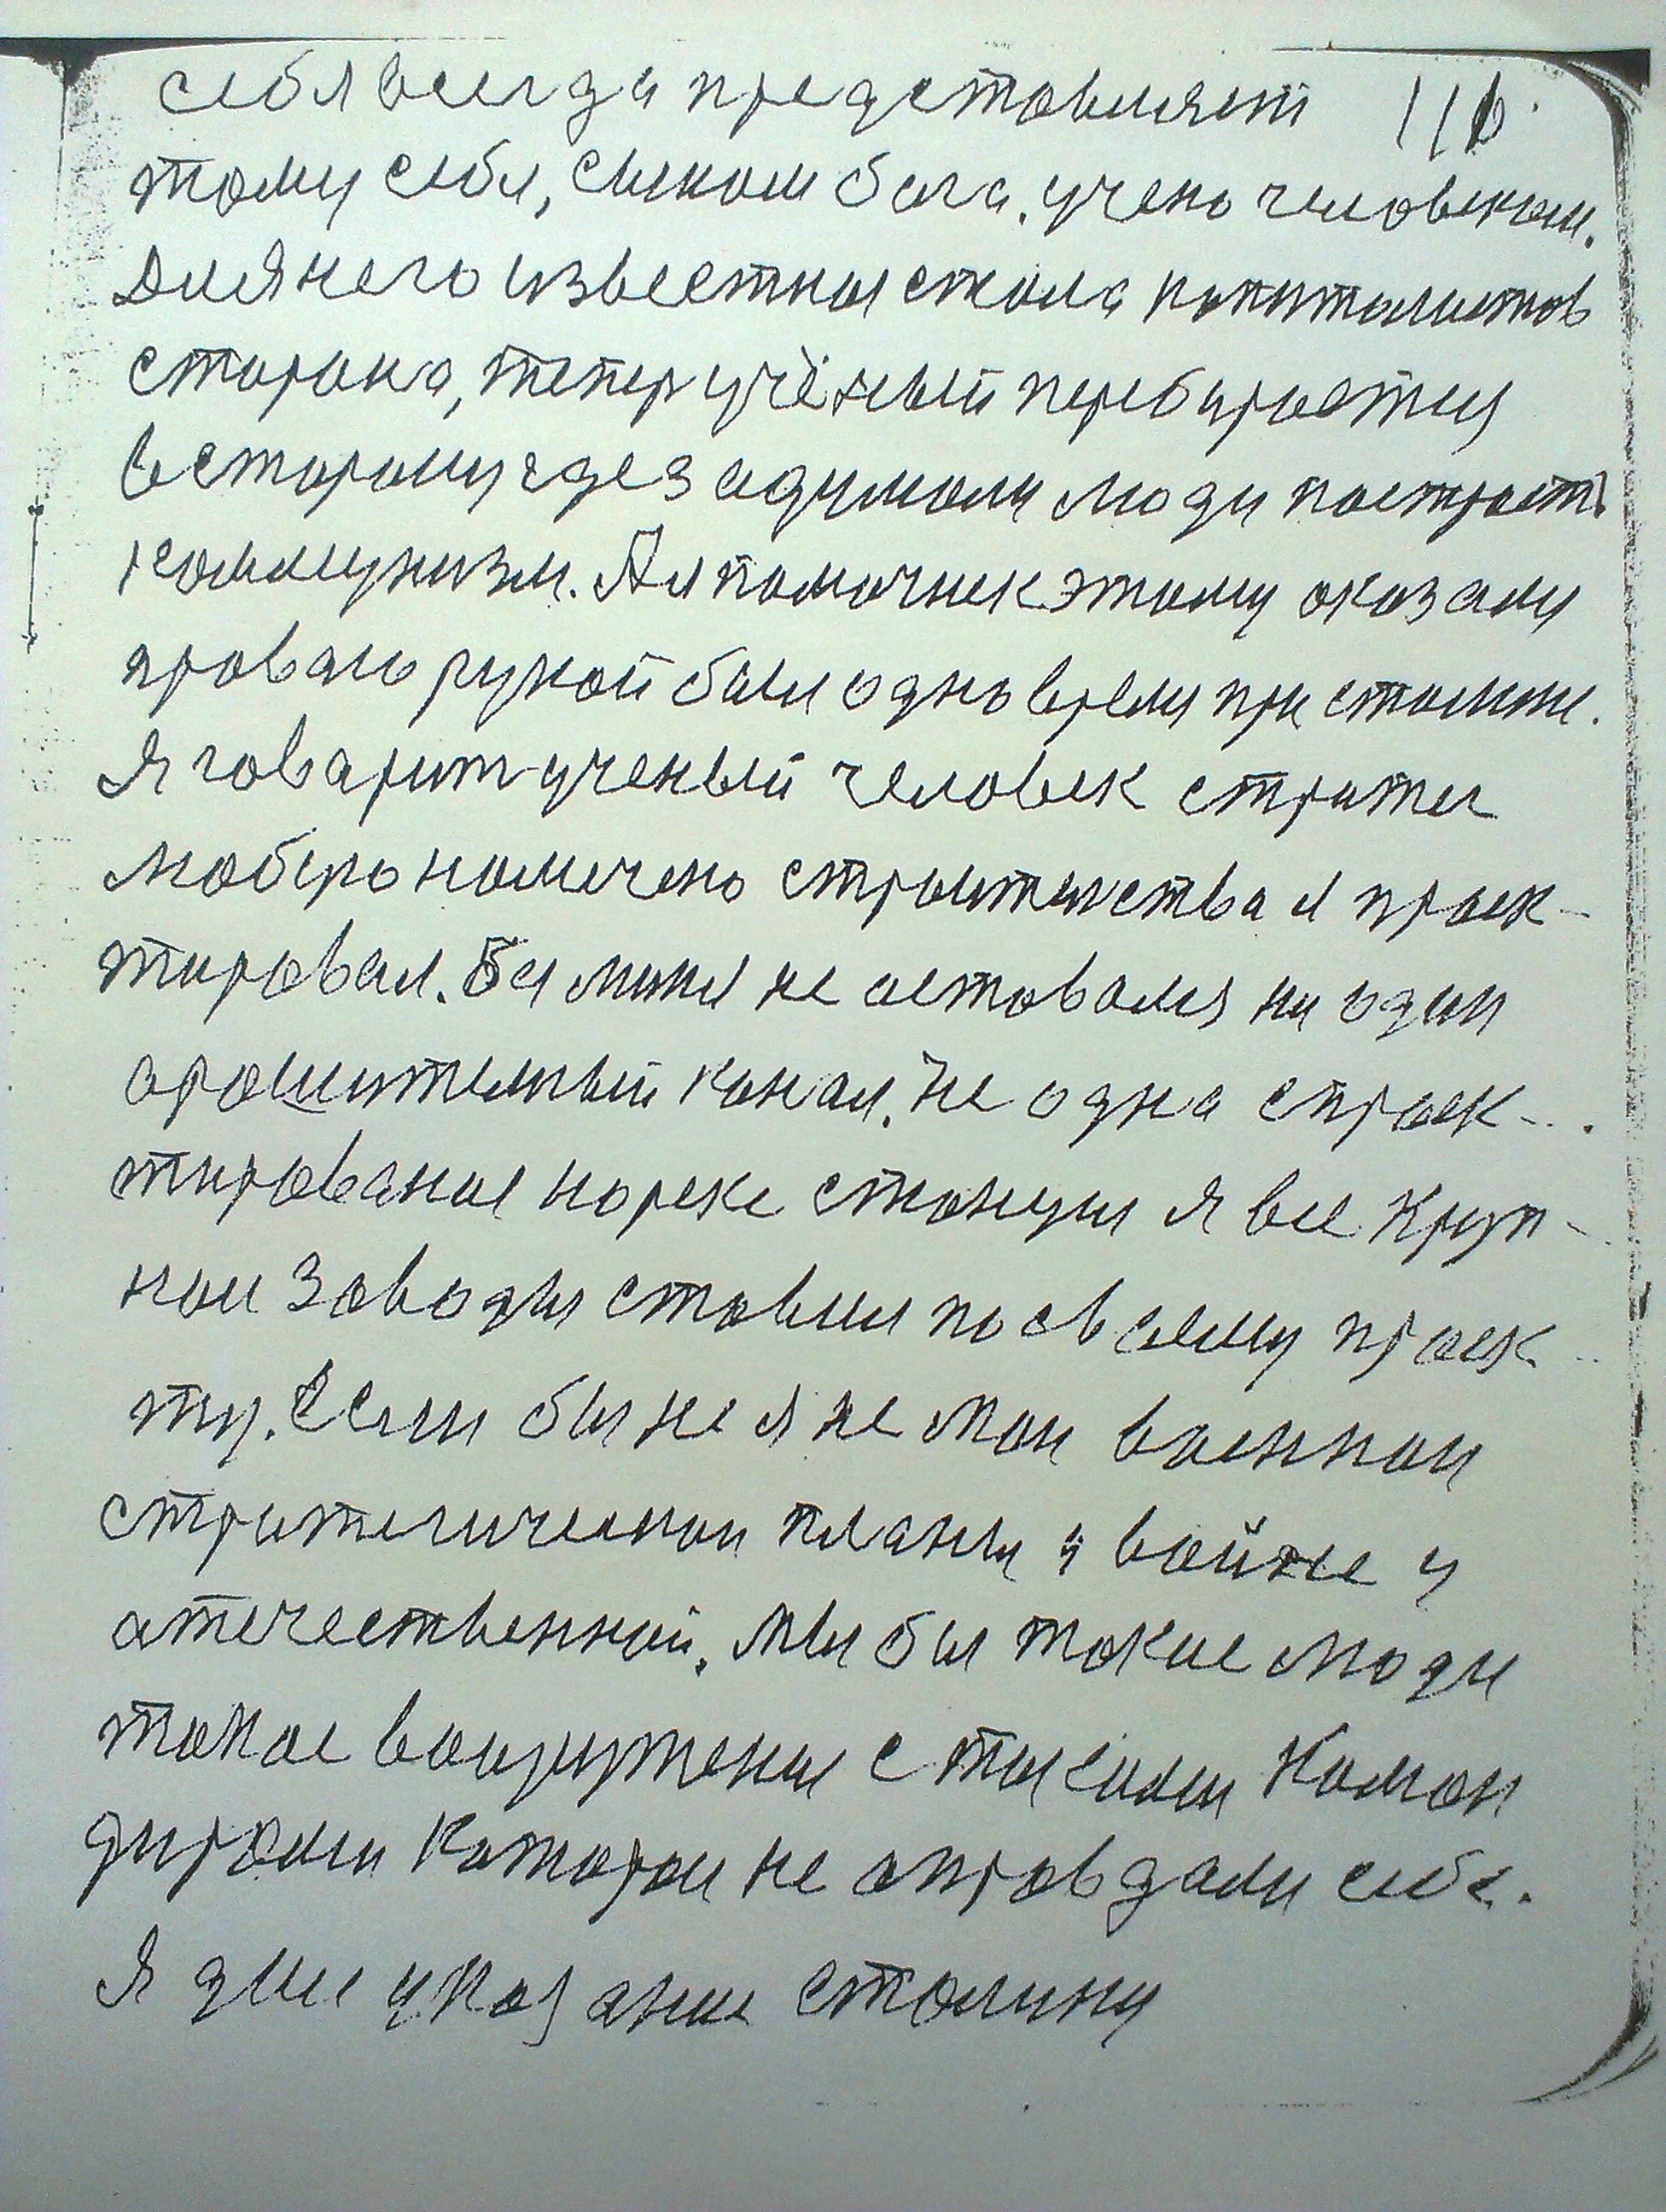 себя всегда представляет 116.
тому себя, сыном бога, учено человеком.
Для него известныя стала капиталистов
старана, тепер учёный перебирается
в старану где задумали люди построет
коммунизм. А я помочнек этому оказали
праваю рукой был одно время при сталине.
Я говарит ученый человек стратег
люберо намечено строителства я проек-
тировал. Без миня не аставался ни один
арошительный канал, не одна спроек-
тированая нореке станция я все круп-
нои заводы ставил по своему проек
ту. Если бы не я не мои военнои
стратегическои планы и войне и
атечественной. Мы бы такие люди
такое вооружения с такими коман
дирами каторои не оправдали себе.
Я дал указание сталину